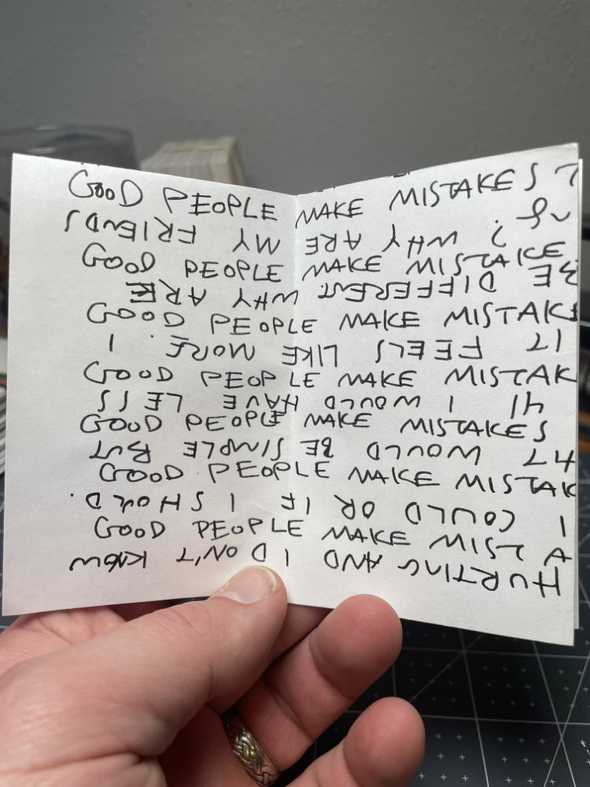 GOOD PEOPLE MAKE MISTAKES
GOOD PEOPLE MAKE MISTAKE
GOOD PEOPLE MAKE MISTAK
GOOD PEOPLE MAKE MISTAK
GOOD PEOPLE MAKE MISTAKES
GOOD PEOPLE MAKE MISTAK
GOOD PEOPLE MAKE MISTA
HURTING AND I DON'T KNOW
I COULD OR IF I SHOULD.
WOULD BE SIMPLE BUT
I WOULD HAVE LESS
IT FEELS LIKE MORE. I
BE DIFFERENT WHY ARE
? WHY ARE MY FRIENDS